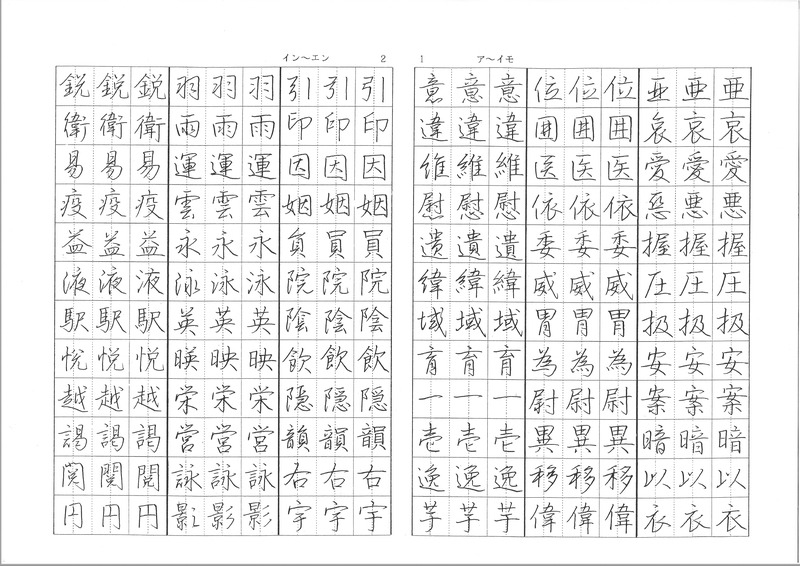 1
ア〜イモ
亜哀愛悪握圧扱安案暗以衣
亜哀愛悪握圧扱安案暗以衣
亜哀愛悪握圧扱安案暗以衣
位囲医依委威胃為尉異移偉
位囲医依委威胃為尉異移偉
位囲医依委威胃為尉異移偉
意違維慰遺緯域育一壱逸芋
意違維慰遺緯域育一壱逸芋
意違維慰遺緯域育一壱逸芋
2
イン〜エン
引印因姻員院陰飲隠韻右宇
引印因姻員院陰飲隠韻右宇
引印因姻員院陰飲隠韻右宇
羽雨運雲永泳英映栄営詠影
羽雨運雲永泳英映栄営詠影
羽雨運雲永泳英映栄営詠影
鋭衛易疫益液駅悦越謁閲円
鋭衛易疫益液駅悦越謁閲円
鋭衛易疫益液駅悦越謁閲円